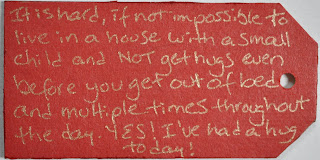 It is hard, if not impossible to
live in a house with a small
child and NOT get hugs even
before you get out of bed
and multiple times throughout
the day. YES! I've had a hug
today!